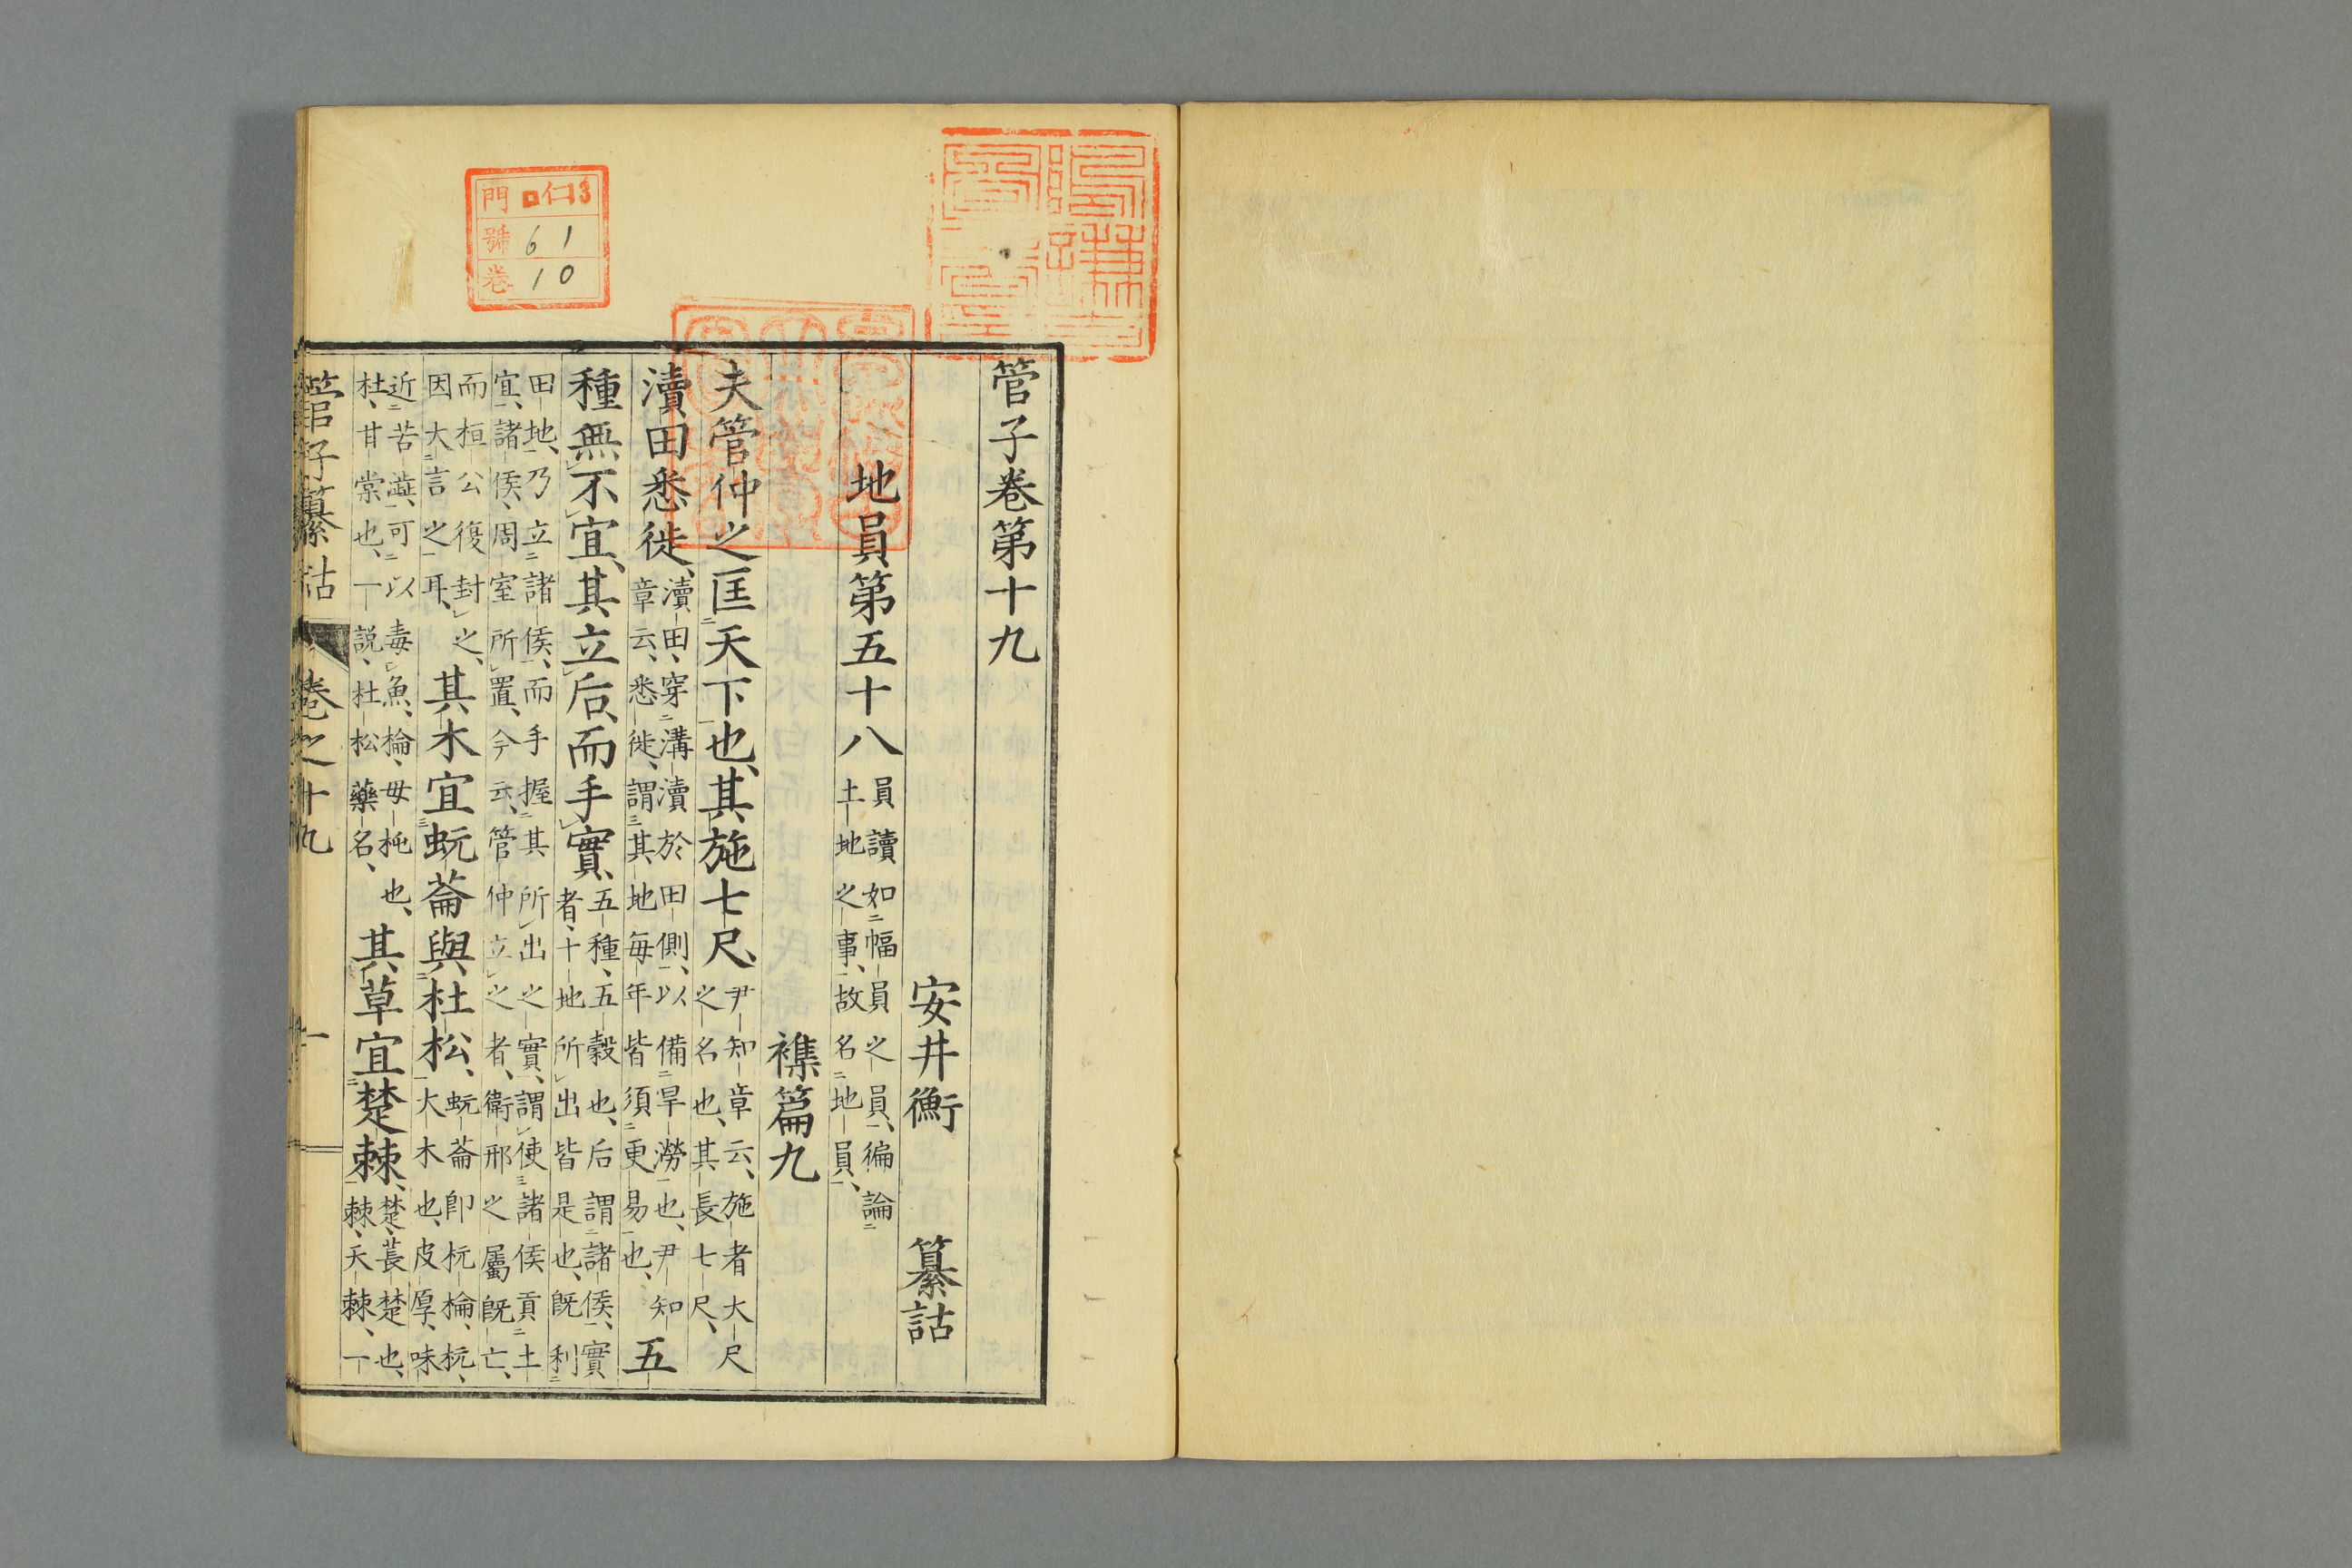 管子卷第十九
安井衡 纂詁
地員第五十八 員讀如幅員之員、徧論
土地之事、故名地員、
襍篇九
夫管仲之匡天下也、其施七尺、 尹知章云、施者大尺
之名也、其長七尺、
瀆田悉徙、 瀆田、穿溝瀆於田側、以備旱澇也、尹知
章云、悉徙、謂其地每年皆須更易也、 五
種無不宜、其立后而手實、 五種、五穀也、后謂諸侯、實
者、十地所出皆是也、既利
田地、乃立諸侯、而手握其所出之實、謂使諸侯貢土
宜、諸侯、周室所置、今云、管仲立之者、衛邢之屬既亡、
而桓公復封之、
因大言之耳、 其木宜蚖菕與杜松、 蚖菕卽杬棆、杬、
大木也、皮厚、味
近苦澁、可以毒魚、棆、毋杶也、
杜、甘棠也、一說、杜松藥名、 其草宜楚棘、 楚、萇楚也、
棘、天棘、一
管子纂詁 卷之十九 一
門 仁13
號 61
卷 10